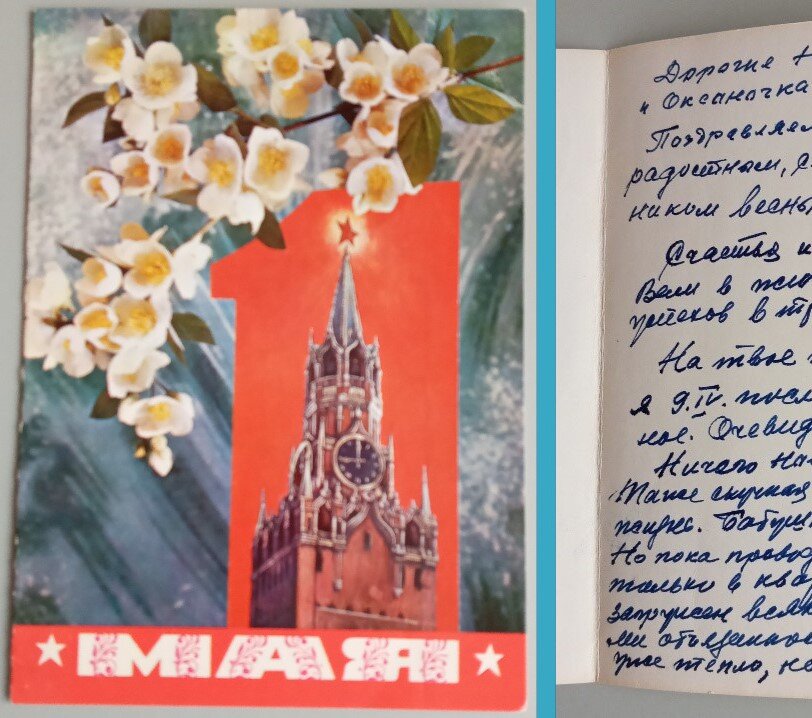 1
МАЯ
Дорогие Н
и Оксаночка
Поздравляем
радостным, с
ником весны
Счастья и
Вам в
успехов в тр
На твое
я 9.IV. посл
ное. Очевид
Ничего на
Такие скучная
жизнь. Бабуш
Но пока провод
только в ква
загружен всяк
ми
уже тепло, не